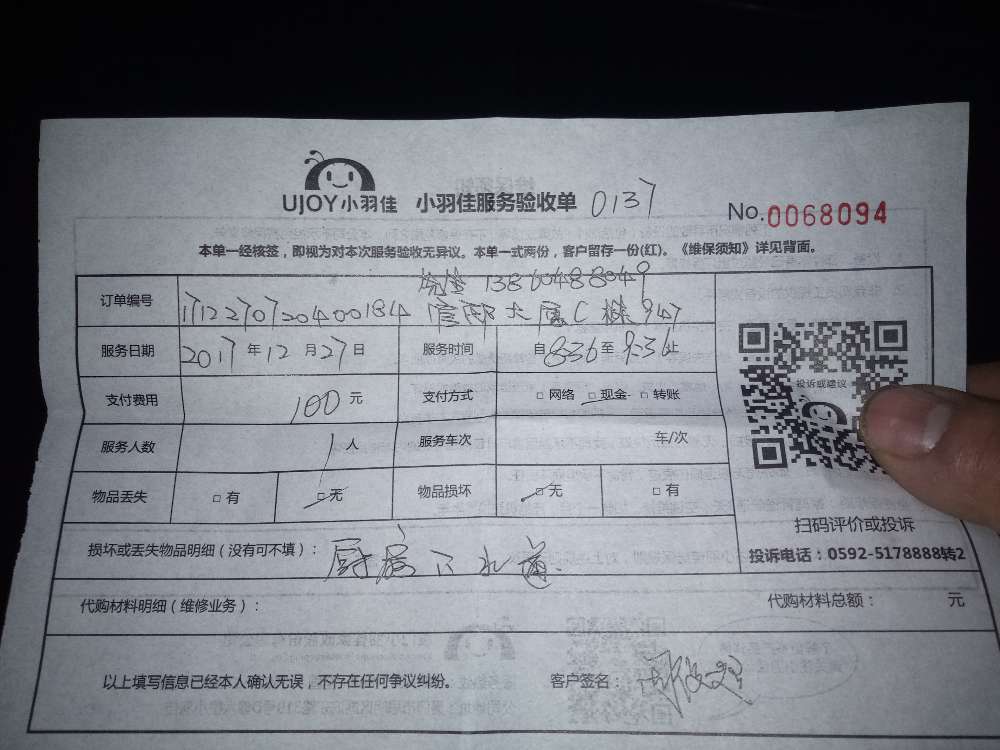 UJOY小羽佳 小羽佳服务验收单 0137
No.0068094
本单一经核签，即视为对本次服务验收无异议。本单一式两份，客户留存一份(红)。《维保须知》详见背面。
13860488049
订单编号 17122707204000184 大厦C楼947
服务日期 2017年12月27日 服务时间 自8:36至9:36止
支付费用 100元 支付方式 □网络 □现金 □转账
投诉或建议
服务人数 1人 服务车次 车/次
物品丢失 □有 □无 物品损坏 □无 □有
扫码评价或投诉
损坏或丢失物品明细（没有可不填）： 厨房下水道.
投诉电话：0592-5178888转2
代购材料明细（维修业务）： 代购材料总额： 元
以上填写信息已经本人确认无误，不存在任何争议纠纷。 客户签名：